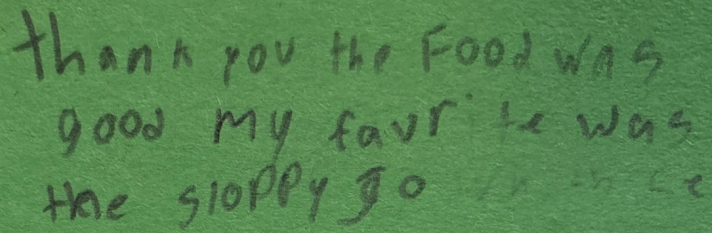 thank you the Food was
good my favrite was
the sloppy Jo